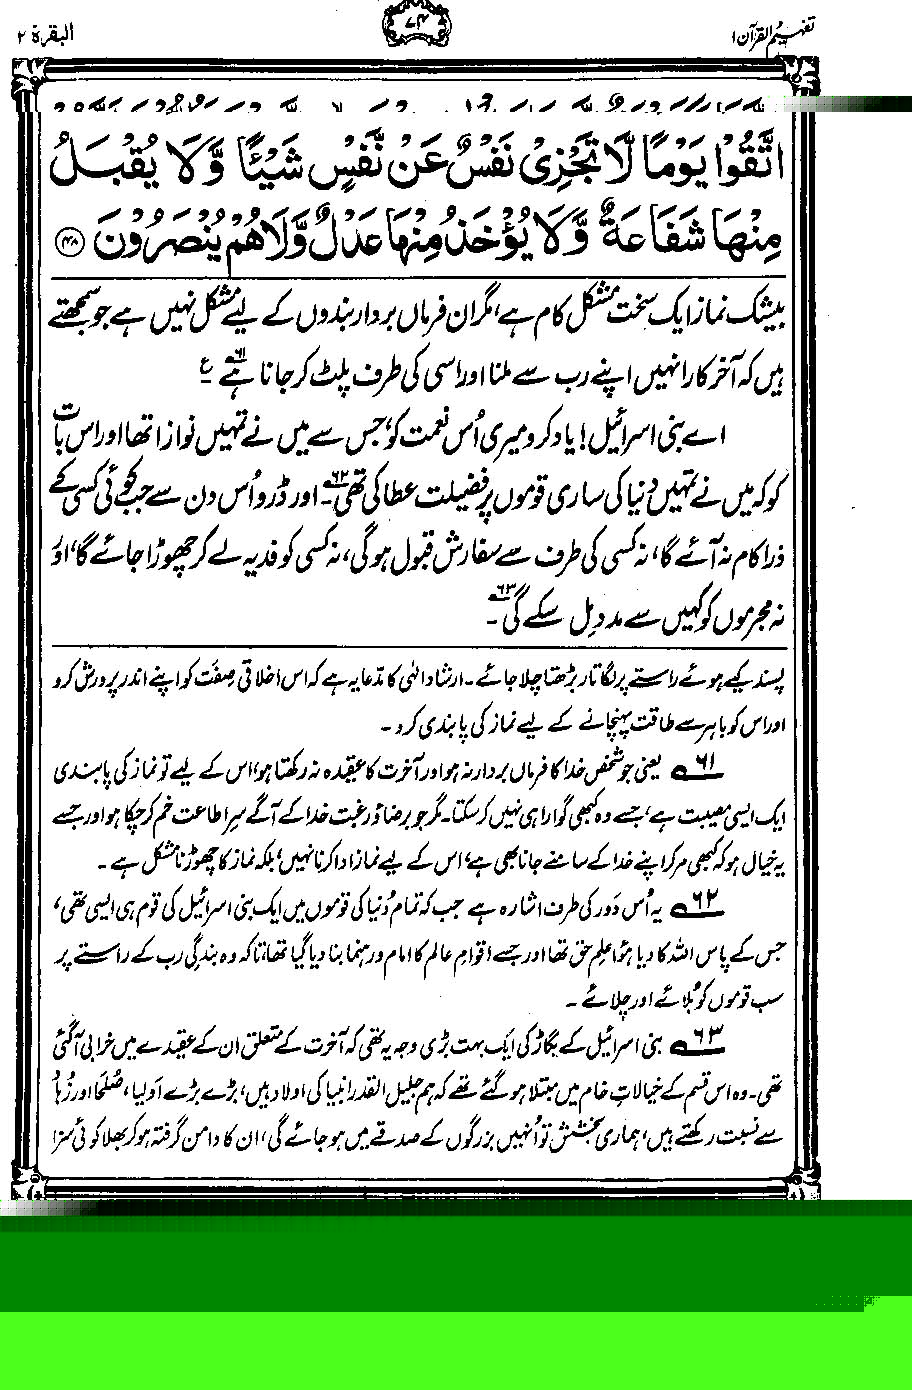 تفہیم القرآن ۱
۷۴
البقرۃ ۲
اتَّقُوْا يَوْمًا لَّا تَجْزِىْ نَفْسٌ عَنْ نَّفْسٍ شَيْـًٔا وَّلَا يُقْبَلُ
مِنْهَا شَفَاعَةٌ وَّلَا يُؤْخَذُ مِنْهَا عَدْلٌ وَّلَا هُمْ يُنْصَرُوْنَ ﴿۴۸﴾
بیشک نماز ایک سخت مشکل کام ہے، مگر ان فرماں بردار بندوں کے لیے مشکل نہیں ہے جو سمجھتے
ہیں کہ آخر کار انہیں اپنے رب سے ملنا اور اسی کی طرف پلٹ کر جانا ہے ۶۱ ؏
اے بنی اسرائیل! یاد کرو میری اُس نعمت کو، جس سے میں نے تمہیں نوازا تھا اور اس بات
کو کہ میں نے تمہیں دنیا کی ساری قوموں پر فضیلت عطا کی تھی ۶۲۔ اور ڈرو اُس دن سے جب کوئی کسی کے
ذرا کام نہ آئے گا، نہ کسی کی طرف سے سفارش قبول ہوگی، نہ کسی کو فدیہ لے کر چھوڑا جائے گا، اور
نہ مجرموں کو کہیں سے مدد مِل سکے گی ۶۳۔
پسند کیے ہوئے راستے پر لگاتار بڑھتا چلا جائے۔ ارشادِ الٰہی کا مدّعا یہ ہے کہ اس اخلاقی صِفَت کو اپنے اندر پرورش کرو
اور اس کو باہر سے طاقت پہنچانے کے لیے نماز کی پابندی کرو۔
۶۱ یعنی جو شخص خدا کا فرماں بردار نہ ہو اور آخرت کا عقیدہ نہ رکھتا ہو، اس کے لیے تو نماز کی پابندی
ایک ایسی مصیبت ہے، جسے وہ کبھی گوارا ہی نہیں کر سکتا۔ مگر جو برضا و رغبت خدا کے آگے سرِ اطاعت خم کر چکا ہو اور جسے
یہ خیال ہو کہ کبھی مر کر اپنے خدا کے سامنے جانا بھی ہے، اس کے لیے نماز ادا کرنا نہیں، بلکہ نماز کا چھوڑنا مشکل ہے۔
۶۲ یہ اُس دَور کی طرف اشارہ ہے جب کہ تمام دُنیا کی قوموں میں ایک بنی اسرائیل کی قوم ہی ایسی تھی،
جس کے پاس اللہ کا دیا ہوُا علمِ حق تھا اور جسے اقوامِ عالم کا امام و رہنما بنا دیا گیا تھا، تاکہ وہ بندگیِ رب کے راستے پر
سب قوموں کو بُلائے اور چلائے۔
۶۳ بنی اسرائیل کے بگاڑ کی ایک بہت بڑی وجہ یہ تھی کہ آخرت کے متعلق ان کے عقیدے میں خرابی آ گئی
تھی۔ وہ اس قسم کے خیالاتِ خام میں مبتلا ہو گئے تھے کہ ہم جلیل القدر انبیا کی اولاد ہیں، بڑے بڑے اَولیا، صُلحا اور زُہّاد
سے نسبت رکھتے ہیں، ہماری بخشش تو اُنہیں بزرگوں کے صدقے میں ہو جائے گی، ان کا دامن گرفتہ ہو کر بھلا کوئی سزا